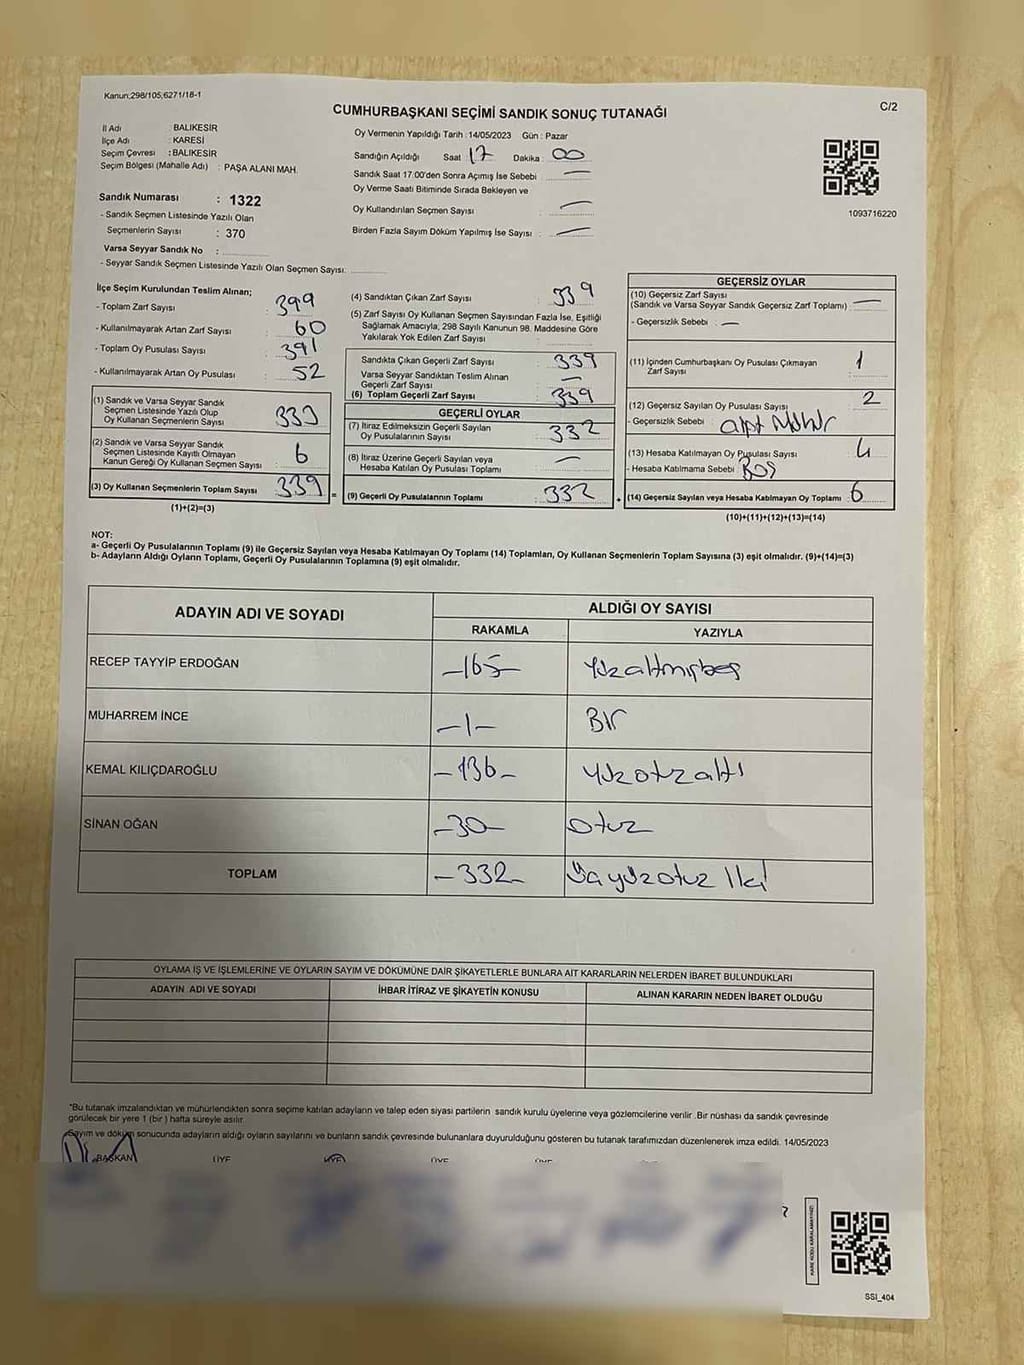 Kanun:298/105,6271/18-1
C/2
CUMHURBAŞKANI SEÇİMİ SANDIK SONUÇ TUTANAĞI
İl Adı : BALIKESİR
İlçe Adı : KARESİ
Seçim Çevresi : BALIKESİR
Seçim Bölgesi (Mahalle Adı) : PAŞA ALANI MAH.
Sandık Numarası : 1322
- Sandık Seçmen Listesinde Yazılı Olan
Seçmenlerin Sayısı : 370
Varsa Seyyar Sandık No :
- Seyyar Sandık Seçmen Listesinde Yazılı Olan Seçmen Sayısı:
Oy Vermenin Yapıldığı Tarih : 14/05/2023 Gün : Pazar
Sandığın Açıldığı Saat 17 Dakika : 00
Sandık Saat 17:00'den Sonra Açımış İse Sebebi : —
Oy Verme Saati Bitiminde Sırada Bekleyen ve
Oy Kullandırılan Seçmen Sayısı : —
Birden Fazla Sayım Döküm Yapılmış İse Sayısı : —
1093716220
İlçe Seçim Kurulundan Teslim Alınan;
- Toplam Zarf Sayısı : 399
- Kullanılmayarak Artan Zarf Sayısı : 60
- Toplam Oy Pusulası Sayısı : 391
- Kullanılmayarak Artan Oy Pusulası : 52
(1) Sandık ve Varsa Seyyar Sandık
Seçmen Listesinde Yazılı Olup
Oy Kullanan Seçmenlerin Sayısı : 333
(2) Sandık ve Varsa Seyyar Sandık
Seçmen Listesinde Kayıtlı Olmayan
Kanun Gereği Oy Kullanan Seçmen Sayısı : 6
(3) Oy Kullanan Seçmenlerin Toplam Sayısı : 339
(1)+(2)=(3)
(4) Sandıktan Çıkan Zarf Sayısı : 339
(5) Zarf Sayısı Oy Kullanan Seçmen Sayısından Fazla İse, Eşitliği
Sağlamak Amacıyla, 298 Sayılı Kanunun 98. Maddesine Göre
Yakılarak Yok Edilen Zarf Sayısı :
Sandıkta Çıkan Geçerli Zarf Sayısı : 339
Varsa Seyyar Sandıktan Teslim Alınan
Geçerli Zarf Sayısı : —
(6) Toplam Geçerli Zarf Sayısı : 339
GEÇERLİ OYLAR
(7) İtiraz Edilmeksizin Geçerli Sayılan
Oy Pusulalarının Sayısı : 332
(8) İtiraz Üzerine Geçerli Sayılan veya
Hesaba Katılan Oy Pusulası Toplamı : —
= (9) Geçerli Oy Pusulalarının Toplamı : 332 +
GEÇERSİZ OYLAR
(10) Geçersiz Zarf Sayısı
(Sandık ve Varsa Seyyar Sandık Geçersiz Zarf Toplamı) : —
- Geçersizlik Sebebi : —
(11) İçinden Cumhurbaşkanı Oy Pusulası Çıkmayan
Zarf Sayısı : 1
(12) Geçersiz Sayılan Oy Pusulası Sayısı : 2
- Geçersizlik Sebebi :
(13) Hesaba Katılmayan Oy Pusulası Sayısı : 4
- Hesaba Katılmama Sebebi : Boş
(14) Geçersiz Sayılan veya Hesaba Katılmayan Oy Toplamı : 6
(10)+(11)+(12)+(13)=(14)
NOT:
a- Geçerli Oy Pusulalarının Toplamı (9) ile Geçersiz Sayılan veya Hesaba Katılmayan Oy Toplamı (14) Toplamları, Oy Kullanan Seçmenlerin Toplam Sayısına (3) eşit olmalıdır. (9)+(14)=(3)
b- Adayların Aldığı Oyların Toplamı, Geçerli Oy Pusulalarının Toplamına (9) eşit olmalıdır.
ADAYIN ADI VE SOYADI ALDIĞI OY SAYISI
RAKAMLA YAZIYLA
RECEP TAYYİP ERDOĞAN –165– Yüzaltmışbeş
MUHARREM İNCE –1– Bir
KEMAL KILIÇDAROĞLU –136– Yüzotuzaltı
SİNAN OĞAN –30– Otuz
TOPLAM –332– Üçyüzotuz İki
OYLAMA İŞ VE İŞLEMLERİNE VE OYLARIN SAYIM VE DÖKÜMÜNE DAİR ŞİKAYETLERLE BUNLARA AİT KARARLARIN NELERDEN İBARET BULUNDUKLARI
ADAYIN ADI VE SOYADI İHBAR İTİRAZ VE ŞİKAYETİN KONUSU ALINAN KARARIN NEDEN İBARET OLDUĞU
*Bu tutanak imzalandıktan ve mühürlendikten sonra seçime katılan adayların ve talep eden siyasi partilerin sandık kurulu üyelerine veya gözlemcilerine verilir. Bir nüshası da sandık çevresinde
görülecek bir yere 1 (bir) hafta süreyle asılır.
Sayım ve döküm sonucunda adayların aldığı oyların sayılarını ve bunların sandık çevresinde bulunanlara duyurulduğunu gösteren bu tutanak tarafımızdan düzenlenerek imza edildi. 14/05/2023
BAŞKAN ÜYE ÜYE ÜYE ÜYE
KARE KODU KARALAMAYINIZ!
SSI_404